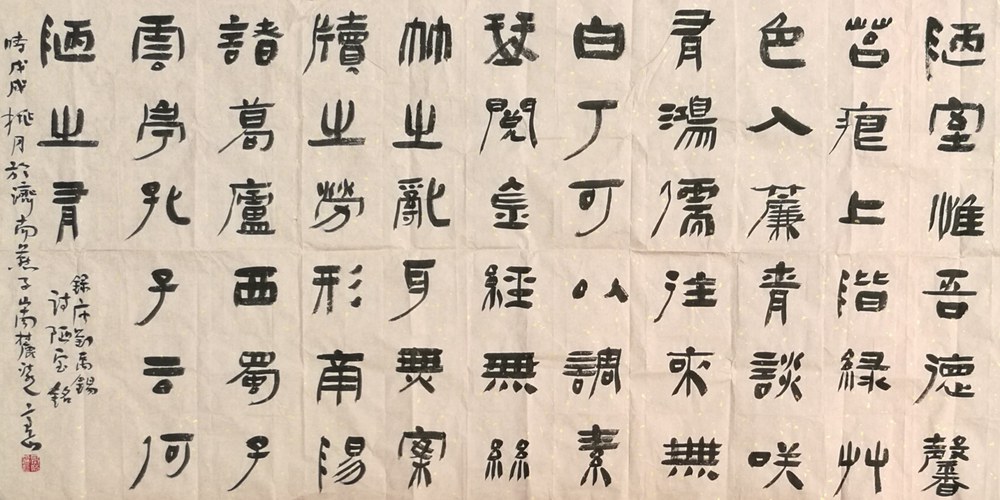 陋室惟吾德馨
苔痕上階緑艸
色入簾青談咲
有鴻儒往來無
白丁可以調素
琴閱金經無絲
竹之亂耳無案
牘之勞形南陽
諸葛廬西蜀子
雲亭孔子云何
陋之有
錄唐劉禹錫
詩陋室銘
時戊戌桃月於濟南燕子山南麓